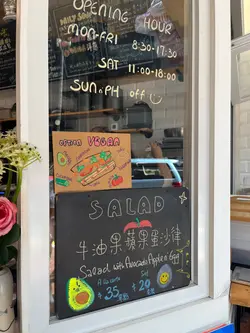 OPENING HOUR
MON-FRI
8:30-17:30
SAT 11:00-18:00
SUN&PH off
OPTION VEGAN
SALAD
牛油果蘋果蛋沙律
Salad with Avocado Apple & Egg
A la carte
$35
Set
$20